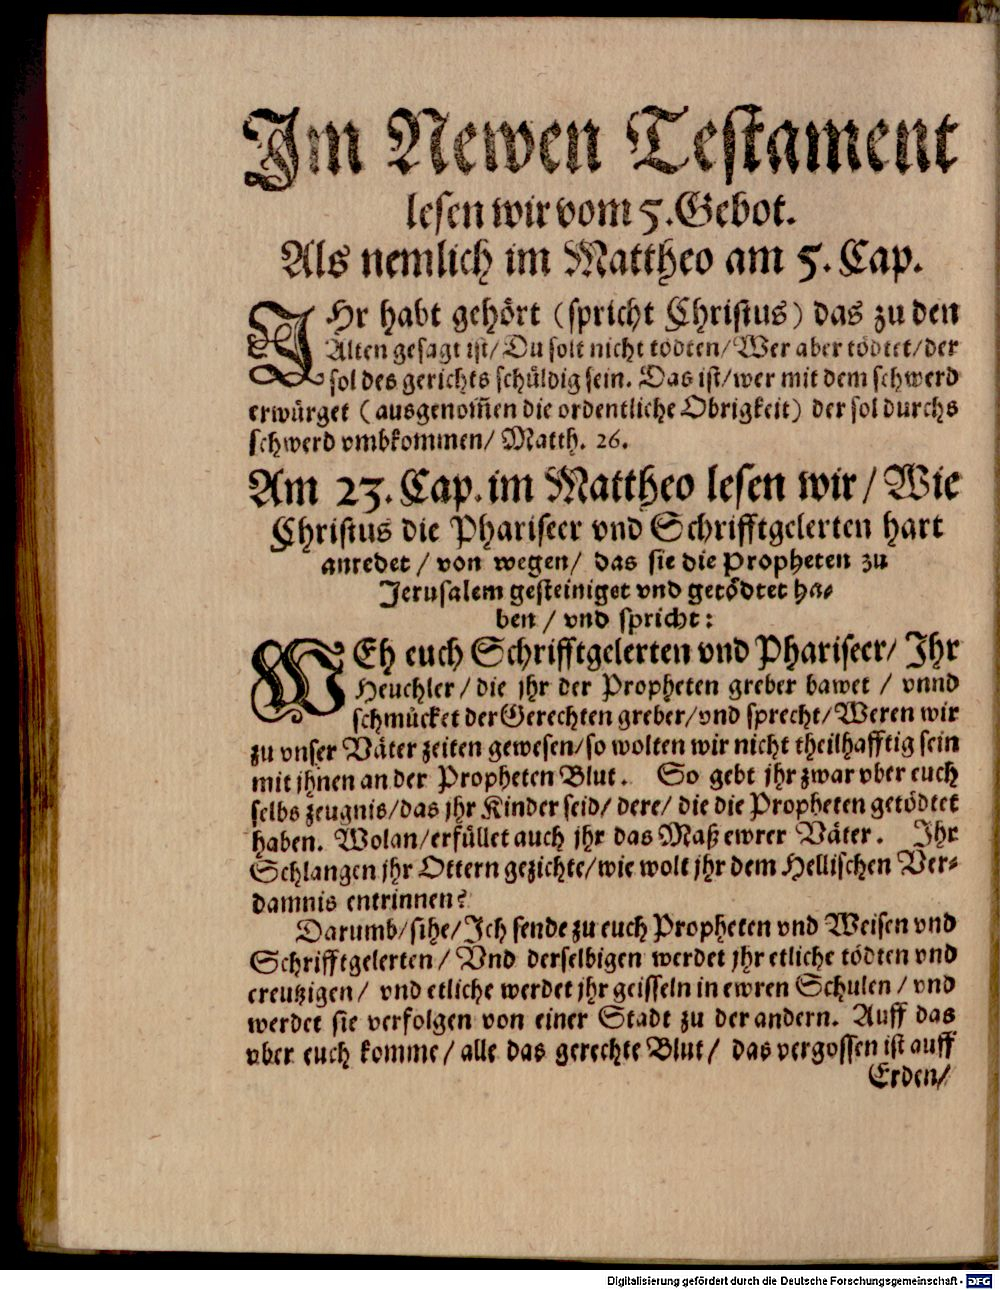 Im Newen Testament
lesen wir vom 5. Gebot.
Als nemlich im Mattheo am 5. Cap.
IHr habt gehört (spricht Christus) das zu den
Alten gesagt ist/ Du solt nicht tödten/ Wer aber tödtet/ der
sol des gerichts schüldig sein. Das ist/ wer mit dem schwerd
erwürget (ausgenom̃en die ordentliche Obrigkeit) der sol durchs
schwerd vmbkommen/ Matth. 26.
Am 23. Cap. im Mattheo lesen wir/ Wie
Christus die Phariseer vnd Schrifftgelerten hart
anredet/ von wegen/ das sie die Propheten zu
Jerusalem gesteiniget vnd getödtet ha-
ben/ vnd spricht:
WEh euch Schrifftgelerten vnd Phariseer/ Ihr
Heuchler/ die jhr der Propheten greber bawet/ vnnd
schmücket der Gerechten greber/ vnd sprecht/ Weren wir
zu vnser Väter zeiten gewesen/ so wolten wir nicht theilhafftig sein
mit jhnen an der Propheten Blut. So gebt jhr zwar vber euch
selbs zeugnis/ das jhr Kinder seid/ dere/ die die Propheten getödtet
haben. Wolan/ erfüllet auch jhr das Maß ewrer Väter. Ihr
Schlangen jhr Ottern gezichte/ wie wolt jhr dem Hellischen Ver-
damnis entrinnen?
Darumb/ sihe/ Ich sende zu euch Propheten vnd Weisen vnd
Schrifftgelerten/ Vnd derselbigen werdet jhr etliche tödten vnd
creutzigen/ vnd etliche werdet jhr geisseln in ewren Schulen/ vnd
werdet sie verfolgen von einer Stadt zu der andern. Auff das
vber euch komme/ alle das gerechte Blut/ das vergossen ist auff
Erden/
Digitalisierung gefördert durch die Deutsche Forschungsgemeinschaft - DFG